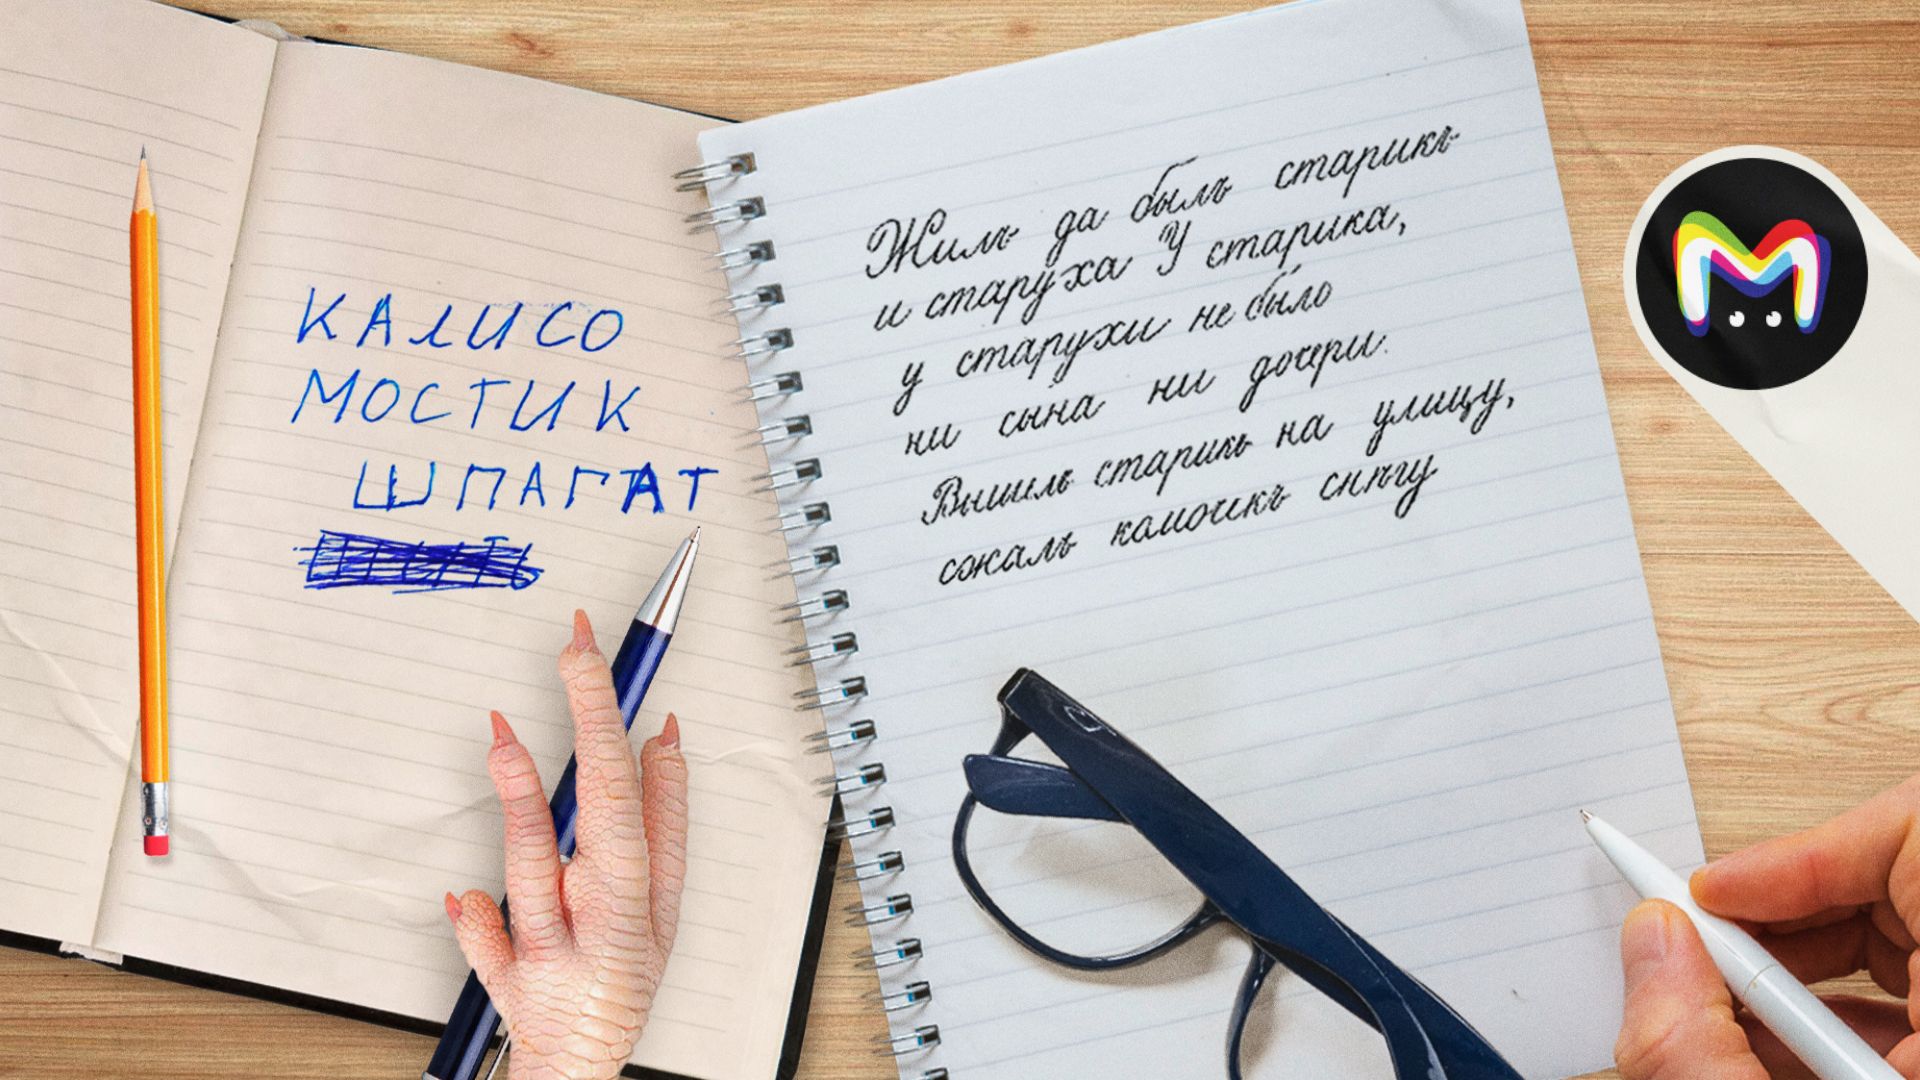 КАЛИСО
МОСТИК
ШПАГАТ
Жилъ да былъ старикъ
и старуха У старика,
у старухи не было
ни сына ни дочери.
Вышилъ старикъ на улицу,
сжалъ комочикъ снѣгу
M